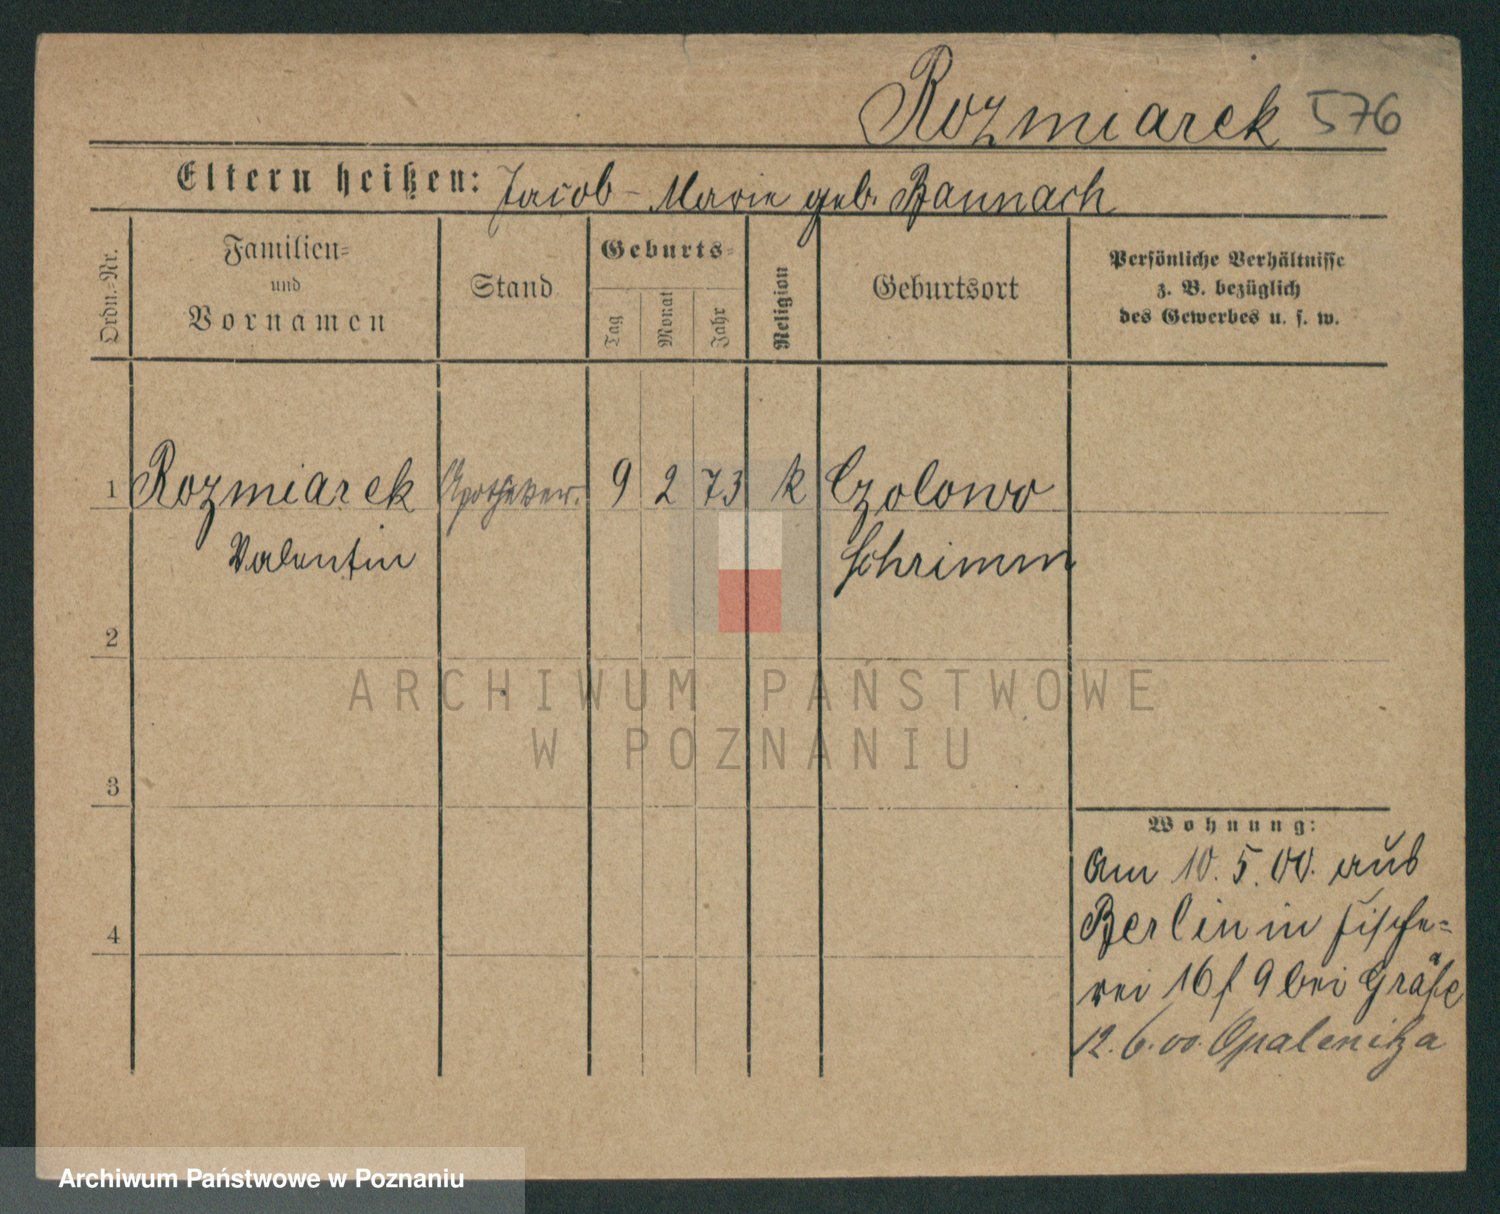 Rozmiarek 576
Eltern heißen: Jacob - Marie geb. Bannach
Ordn.-Nr.
Familien- und Vornamen
Stand
Geburts-
Tag
Monat
Jahr
Religion
Geburtsort
Persönliche Verhältnisse
z. B. bezüglich
des Gewerbes u. s. w.
1 Rozmiarek Apotheker. 9 2 73 k Czolowo
Valentin Schrimm
2
3
4
Wohnung:
Am 10. 5. 00. aus
Berlin in Fische=
rei 16 f 9 bei Gräfe
12. 6. 00. Opalenitza
ARCHIWUM PAŃSTWOWE
W POZNANIU
Archiwum Państwowe w Poznaniu